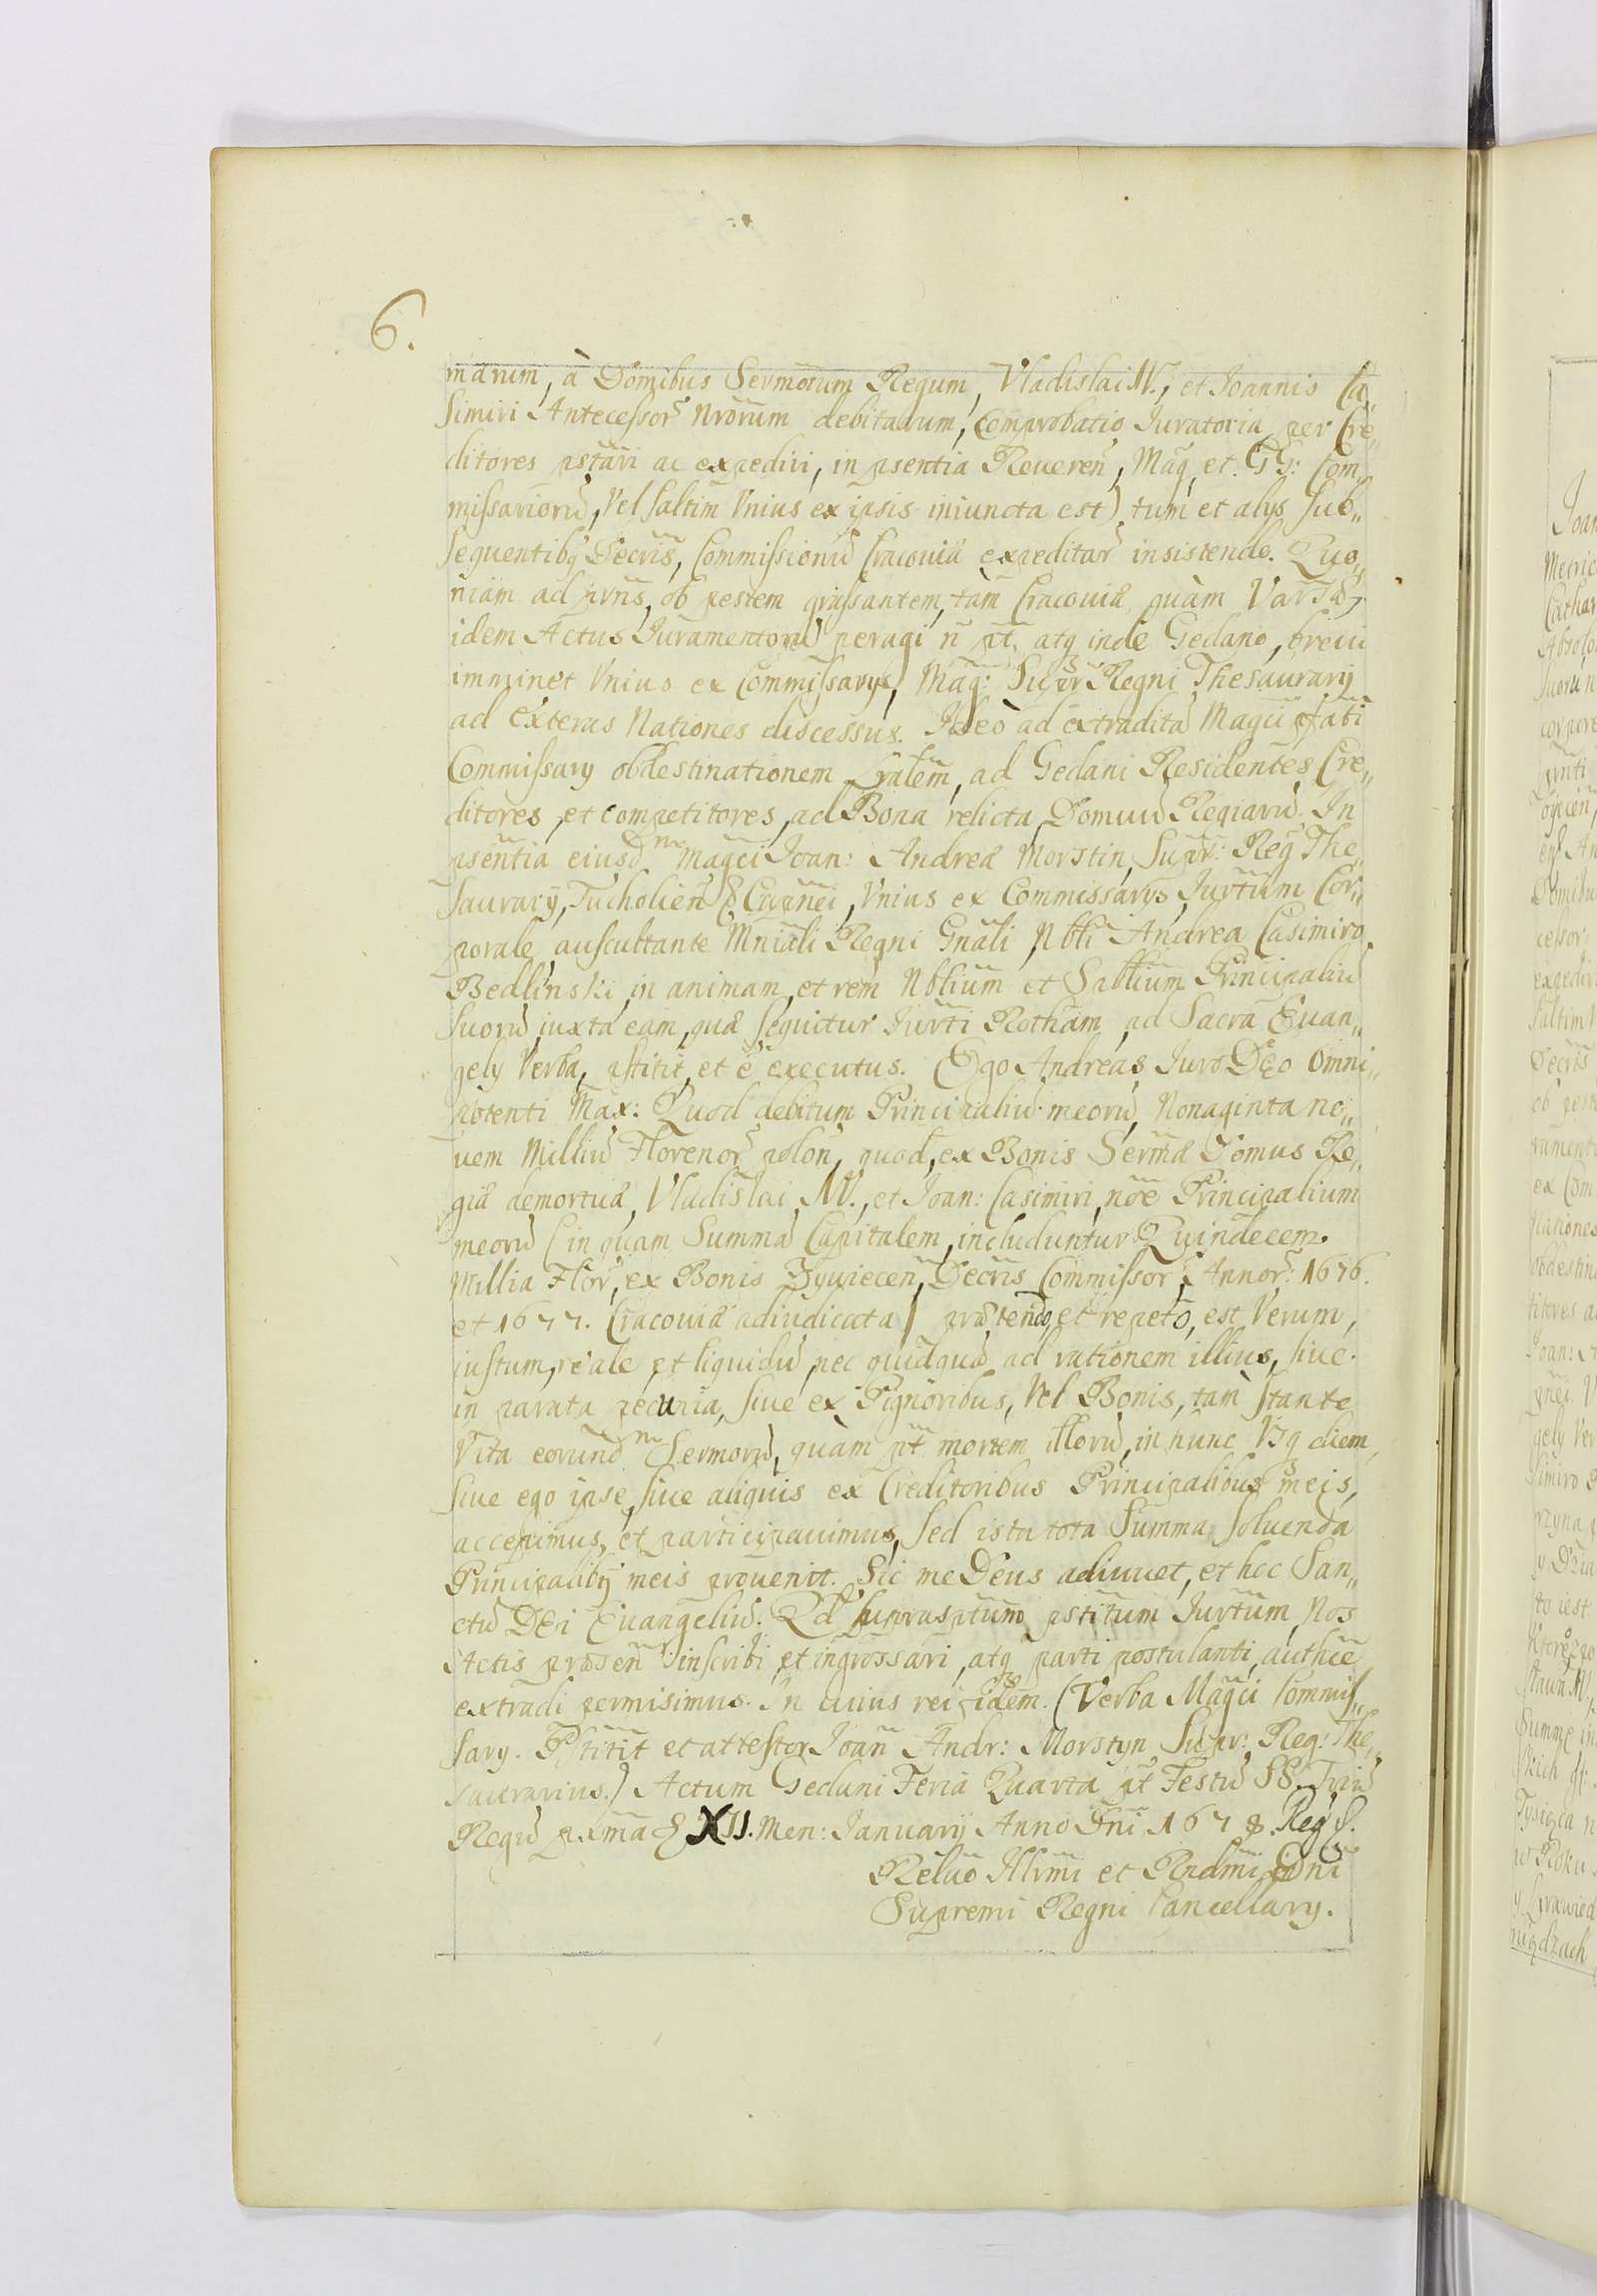 6.
marum, à Domibus Sermorum Regum, Vladislai IV., et Joannis Ca„
simiri Antecessor Nrorum debitarum, Comprobatio Juratoria per Cre„
ditores pstari ac expediri, in psentia Reueren, Mag, et GG: Com„
missarioru, Vel saltim Vnius ex ipsis iniuncta est) tum et alys sub„
sequentibq Decris, Commissionu Cracoviæ expeditar insistendo. Quo„
niam ad prns, ob pestem grassantem, tàm Cracoviæ quàm Varsæ
idem Actus Juramentoru peragi n pt, atq inde Gedano, breui
imminet Vnius ex Commissarys, Mag: Supr Regni Thesaurary
ad Exteras Nationes discessus. Ideò ad extradita Magci pfati
Commissary obdestinationem Gralem, ad Gedani Residentes Cre„
ditores, et Competitores, ad Bona relicta Domuu Regiaru. In
psentia eiusdm Magci Joan: Andreæ Morstin, Supr: Reg The„
saurary, Tucholien & Capnei, Vnius ex Commissarys Jurtum Cor„
porale auscultante Mniali Regni Gnali Nbli Andrea Casimiro
Bedlinski in animam et rem Nblium et Spblium Principaliu
suoru iuxta eam, quæ sequitur Jurti Rotham, ad Sacra Euan„
gely Verba, pstitit, et e executus. Ego Andreas Juro DEo Omni„
potenti Max: Quod debitum Principaliu meoru, Nonaginta no„
uem Milliu Florenor polon, quod, ex Bonis Sermæ Domus Re„
giæ demortuæ, Vladislai IV., et Joan: Casimiri, noe Principalium
meoru (in quam Summa Capitalem, includuntur Quindecem
Millia Flor, ex Bonis Zywiecen, Decris Commissor, Annor: 1676.
et 1677. Cracoviæ adiudicata) prætendo, et repeto, est Verum,
iustum, reale et liquidu, nec quidqua ad rationem illius, siue
in parata pecunia, siue ex Pignoribus, Vel Bonis, tàm stante
Vita eorundm Sermoru, quàm pt mortem illoru, in hunc Vsq diem,
siue ego ipse, siue aliquis ex Creditoribus Principalibus meis,
accepimus, et participauimus, sed ista tota Summa soluenda
Principalibq meis prouenit. Sic me Deus adiuuet, et hoc San„
ctu DEi Euangeliu. Qd suprasptum pstitum Jurtum, Nos
Actis præsen inscribi et ingrossari, atq parti postulanti, authce
extradi permisimus. In cuius rei fidem. (Verba Magci Commis„
sary. Pstitit et attestor Joan Andr: Morstyn Supr: Reg: The„
saurarius.) Actum Gedani Feria Quarta pt Festu SS. Triu
Regu pxma & XII. Men: January Anno Dni 1678. Reg
Relao Illrmi et Rndmi Dni
Supremi Regni Cancellary.